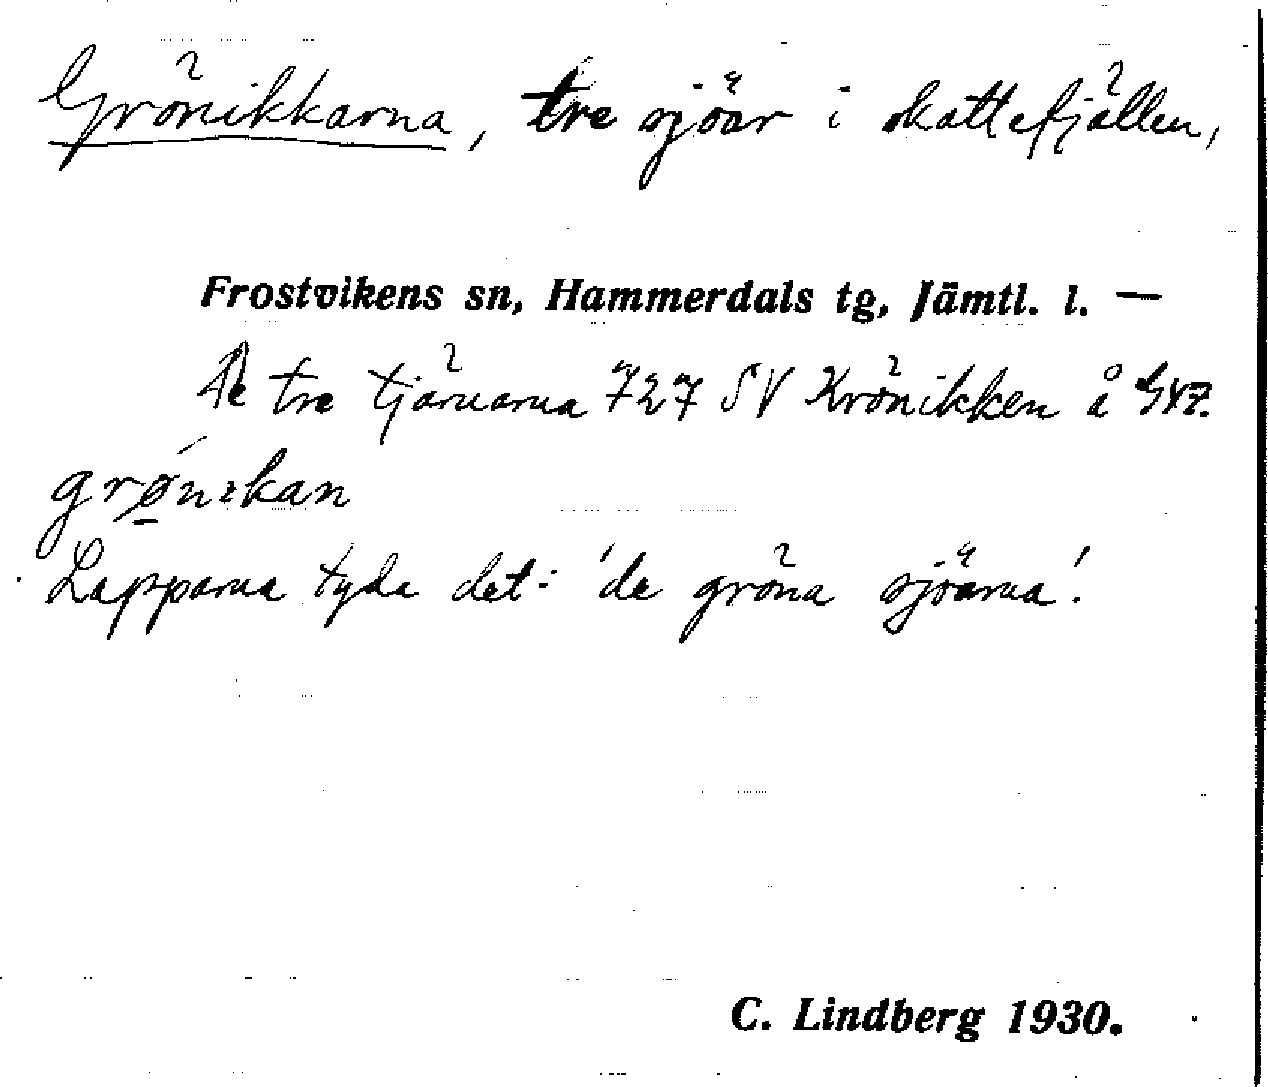 Grönikkarna, tre sjöar i skattefjällen,
Frostvikens sn, Hammerdals tg, Jämtl. l. —
De tre tjärnarna 727 SV Krönikken å GXZ.
grø̱nikan
Lapparna tyda det: 'de gröna sjöarna'.
C. Lindberg 1930.